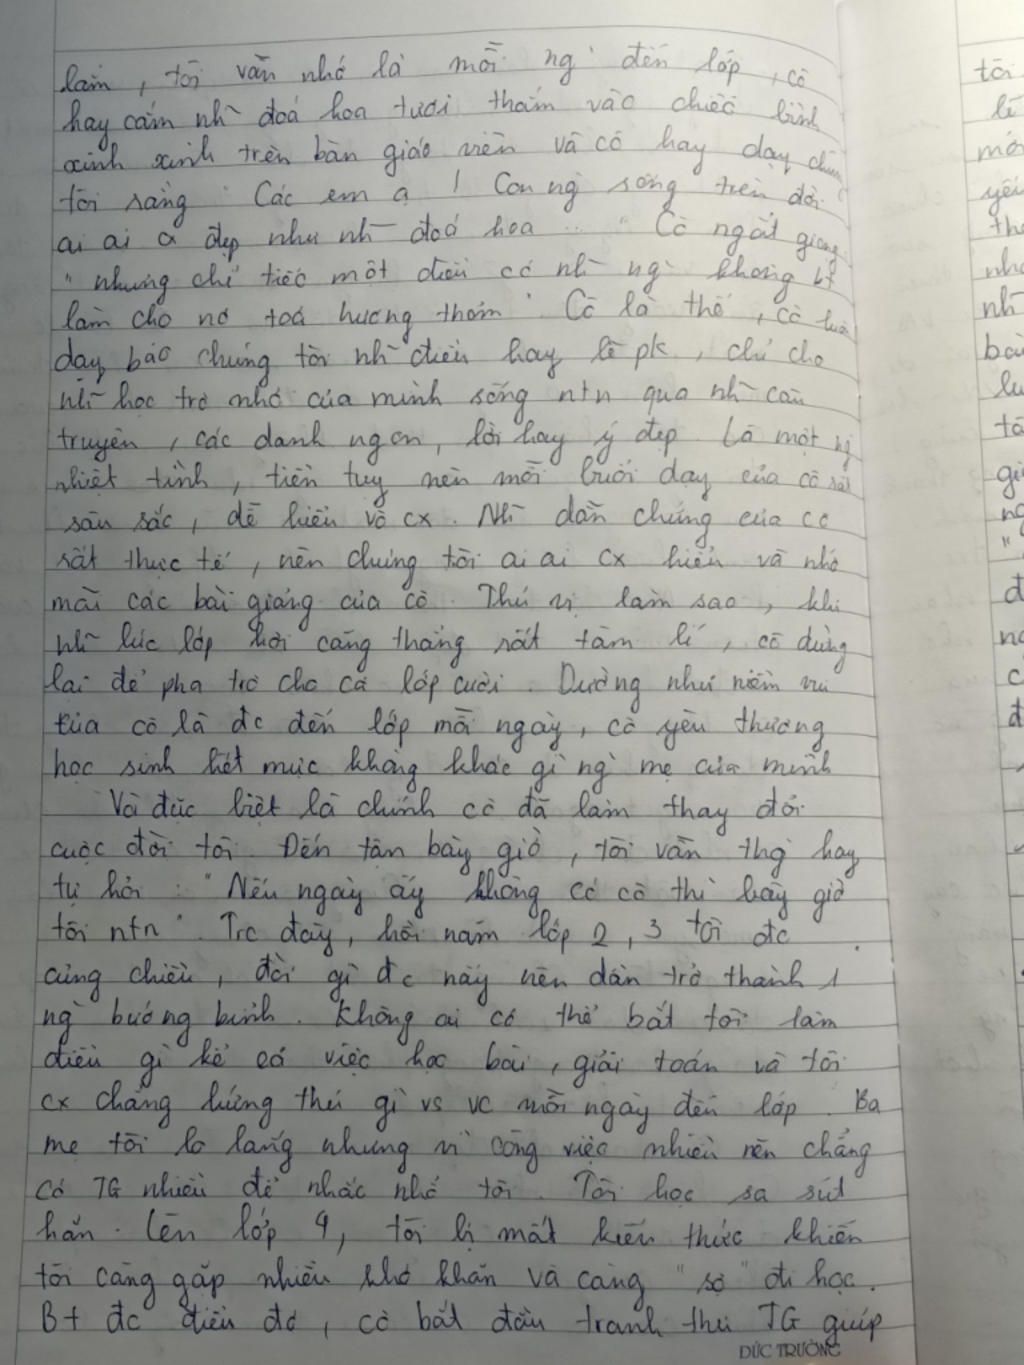 lắm, tôi vẫn nhớ là mỗi ng` đến lớp, cô
hay cắm nh~ đoá hoa tươi thắm vào chiếc bình
xinh xinh trên bàn giáo viên và cô hay dạy chúng
tôi rằng "Các em ạ! Con ng` sống trên đời
ai ai cx đẹp như nh~ đoá hoa ..." Cô ngắt giọng
"nhưng chỉ tiếc một điều có nh~ ng` không bt
làm cho nó toả hương thơm". Cô là thế, cô luôn
dạy bảo chúng tôi nh~ điều hay lẽ pk, chỉ cho
nh~ học trò nhỏ của mình sống ntn qua nh~ câu
truyện, các danh ngôn, lời hay ý đẹp. Là một ng`
nhiệt tình, tiền tuỵ nên mỗi buổi dạy của cô rất
sâu sắc, dễ hiểu vô cx. Nh~ dẫn chứng của cô
rất thực tế, nên chúng tôi ai ai cx hiểu và nhớ
mãi các bài giảng của cô. Thú vị làm sao, khi
nh~ lúc lớp hơi căng thẳng rất tâm lí, cô dừng
lại để pha trò cho cả lớp cười. Dường như niềm vui
của cô là đc đến lớp mỗi ngày, cô yêu thương
học sinh hết mực không khác gì ng` mẹ của mình
Và đặc biệt là chính cô đã làm thay đổi
cuộc đời tôi. Đến tận bây giờ, tôi vẫn thg hay
tự hỏi: "Nếu ngày ấy không có cô thì bây giờ
tôi ntn". Trc đây, hồi năm lớp 2, 3 tôi đc
cưng chiều, đòi gì đc nấy nên dần trở thành 1
ng` bướng bỉnh. Không ai có thể bắt tôi làm
điều gì kể cả việc học bài, giải toán và tôi
cx chẳng hứng thú gì vs vc mỗi ngày đến lớp. Ba
mẹ tôi lo lắng nhưng vì công việc nhiều nên chẳng
có TG nhiều để nhắc nhở tôi. Tôi học sa sút
hẳn. Lên lớp 4, tôi bị mất kiến thức khiến
tôi càng gặp nhiều khó khăn và càng "sợ" đi học.
Bt đc điều đó, cô bắt đầu tranh thủ TG giúp
ĐỨC TRƯỜNG